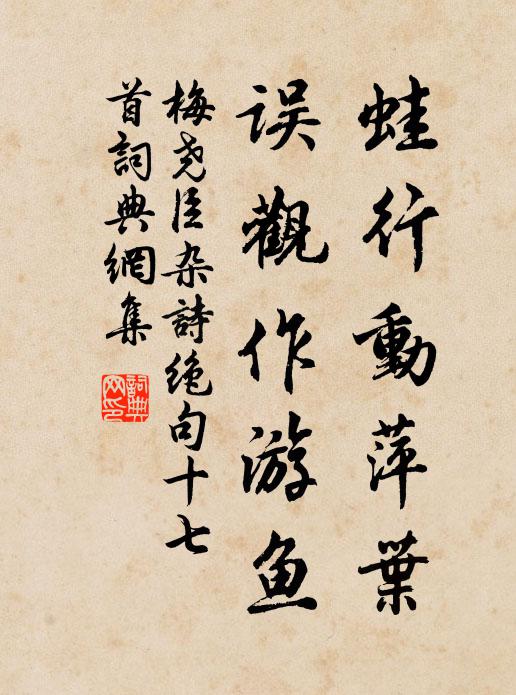 蛙行動萍葉
误觀作游鱼
梅尧臣杂詩绝句十七
首詞典網集
詞典
网印